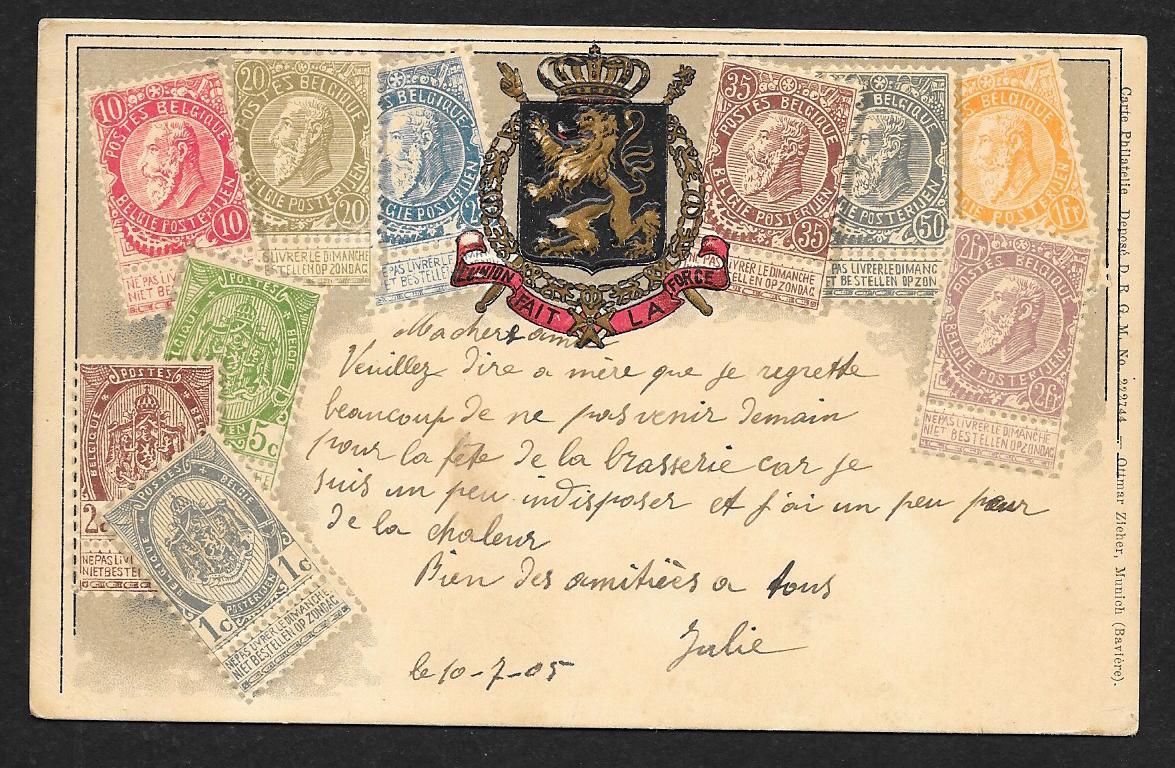 10
POSTES BELGIQUE
BELGIE POSTERIJEN
10
NE PAS LIV
NIET BE
20
POSTES BELGIQUE
BELGIE POSTERIJEN
20
LIVRER LE DIMANCHE
BESTELLEN OP ZONDAG
BELGIQUE
GIE POSTERIJEN
2
NE PAS LIVRER LE
ET BESTELLEN
L'UNION FAIT LA FORCE
35
POSTES BELGIQUE
BELGIE POSTERIJEN
35
NE PAS LIVRER LE DIMANCHE
BESTELLEN OP ZONDAG
BELGIQUE
POSTERIJEN
50
PAS LIVRER LE DIMANC
ET BESTELLEN OP ZON
BELGIQUE
GIE POSTERIJEN
1fr
2fr
POSTES BELGIQUE
BELGIE POSTERIJEN
2fr
NE PAS LIVRER LE DIMANCHE
NIET BESTELLEN OP ZONDAG
POSTES
BELGIE
5c
POSTES
BELGIQUE
2
NE PAS LIVI
NIET BESTEL
POSTES
BELGIE
BELGIQUE
POSTERIJEN
1c
1c
NE PAS LIVRER LE DIMANCHE
NIET BESTELLEN OP ZONDAG
Ma chere
Veuillez dire a mère que je regrette
beaucoup de ne pas venir demain
pour la fête de la brasserie car je
suis un peu indisposer et j'ai un peu peur
de la chaleur
Bien des amitiées a tous
Julie
le 10-7-05
Carte Philatelie Deposé D. R. G. M. No. 222744 — Ottmar Zieher, Munich (Bavière).